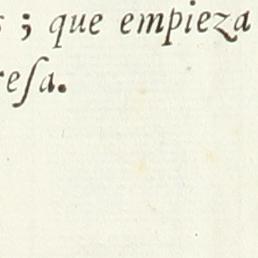 ; que empieza
esa.